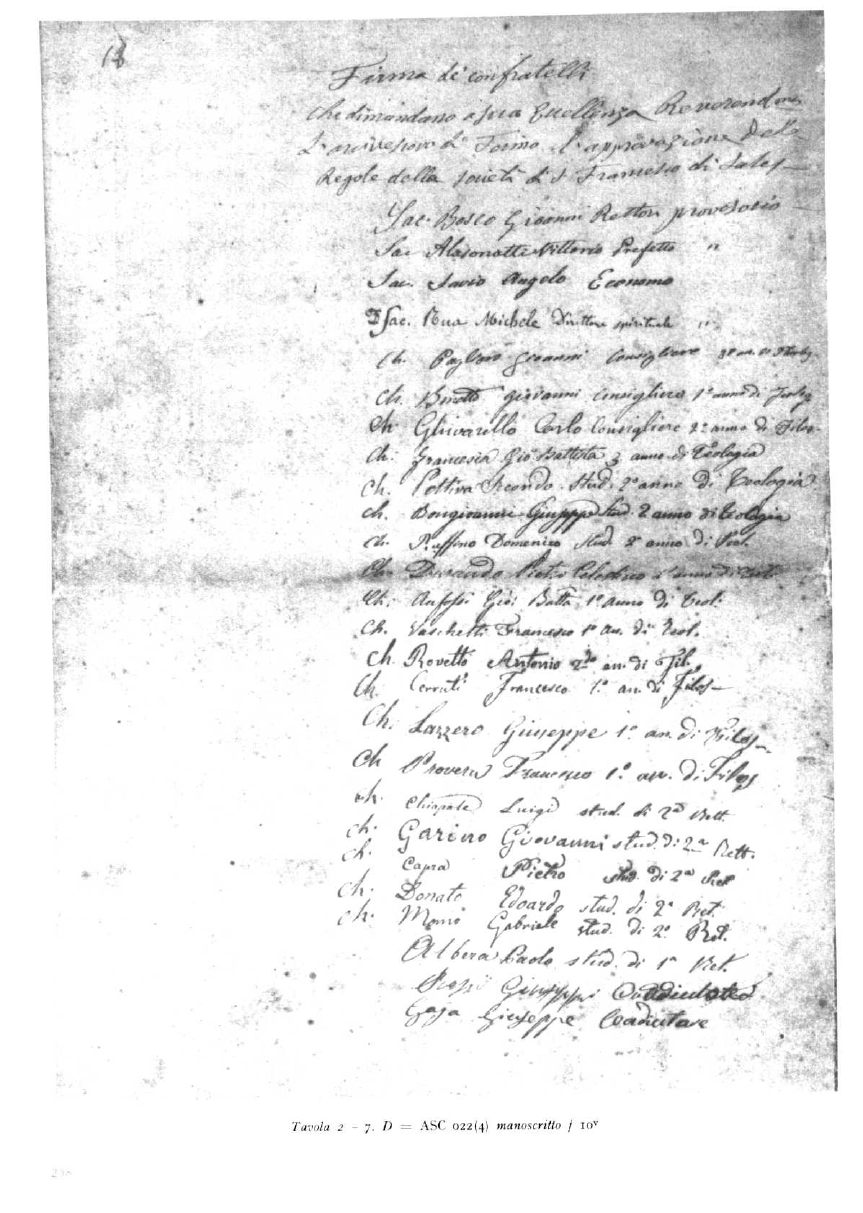 18
Firma de' confratelli
che dimandano a sua Eccellenza Reverendma
L'arcivescovo di Torino l'approvazione delle
Regole della società di S. Francesco di Sales
Sac. Bosco Giovanni Rettore provvisorio
Sac. Alasonatti Vittorio Prefetto "
Sac. Savio Angelo Economo
D Sac. Rua Michele Direttore spirituale "
Ch. Gioanni Consigliere 3º an. di
Ch. Giovanni Consigliere 1º anno di Teolog
Ch. Ghivarello Carlo Consigliere 2º anno di Filos.
Ch. Francesia Gio Battista 3 anno di Teologia
Ch. Pettiva Secondo Stud. 2º anno di Teologia
Ch. Bongioanni Giuseppe Stud. 2 anno di Teologia
Ch. Ruffino Domenico stud. 2º anno di Teol.
Ch. Durando Celestino anno di Teol.
Ch. Anfossi Gio: Batta 1º anno di Teol.
Ch. Vaschetti Francesco 1º an. di Teol.
Ch. Rovetto Antonio 2do an. di Fil.
Ch. Cerruti Francesco 1º an. di Filos
Ch. Lazzero Giuseppe 1º an. di Filos
Ch Provera Francesco 1º an. di Filos
ch. Chiapale Luigi stud. di 2a Rett.
ch. Garino Giovanni stud. di 2a Rett.
ch. Capra Pietro stud. di 2a Ret
ch. Donato Edoardo stud. di 2a Ret.
ch. Momo Gabriele stud. di 2a Ret.
Albera Paolo stud. di 1a Ret.
Rossi Giuseppe Coadiutore
Gaja Giuseppe Coadiutore
Tavola 2 – 7. D = ASC 022(4) manoscritto f 10v